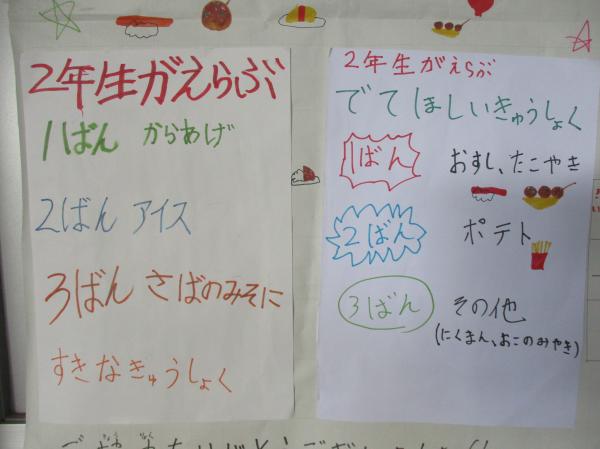 2年生がえらぶ
1ばん からあげ
2ばん アイス
3ばん さばのみそに
すきなきゅうしょく
2年生がえらぶ
でてほしいきゅうしょく
1ばん おすし、たこやき
2ばん ポテト
3ばん その他
(にくまん、おこのみやき)